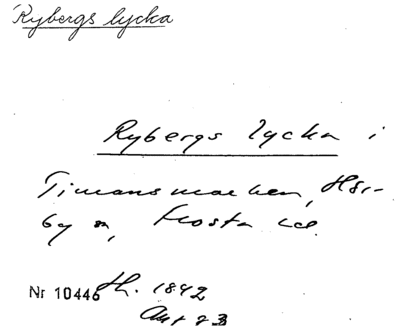 Rybergs lycka
Rybergs lycka i
Timansmarken, Hör-
by sn, Frosta hd.
Nr 10446 th. 1842
Akt 23